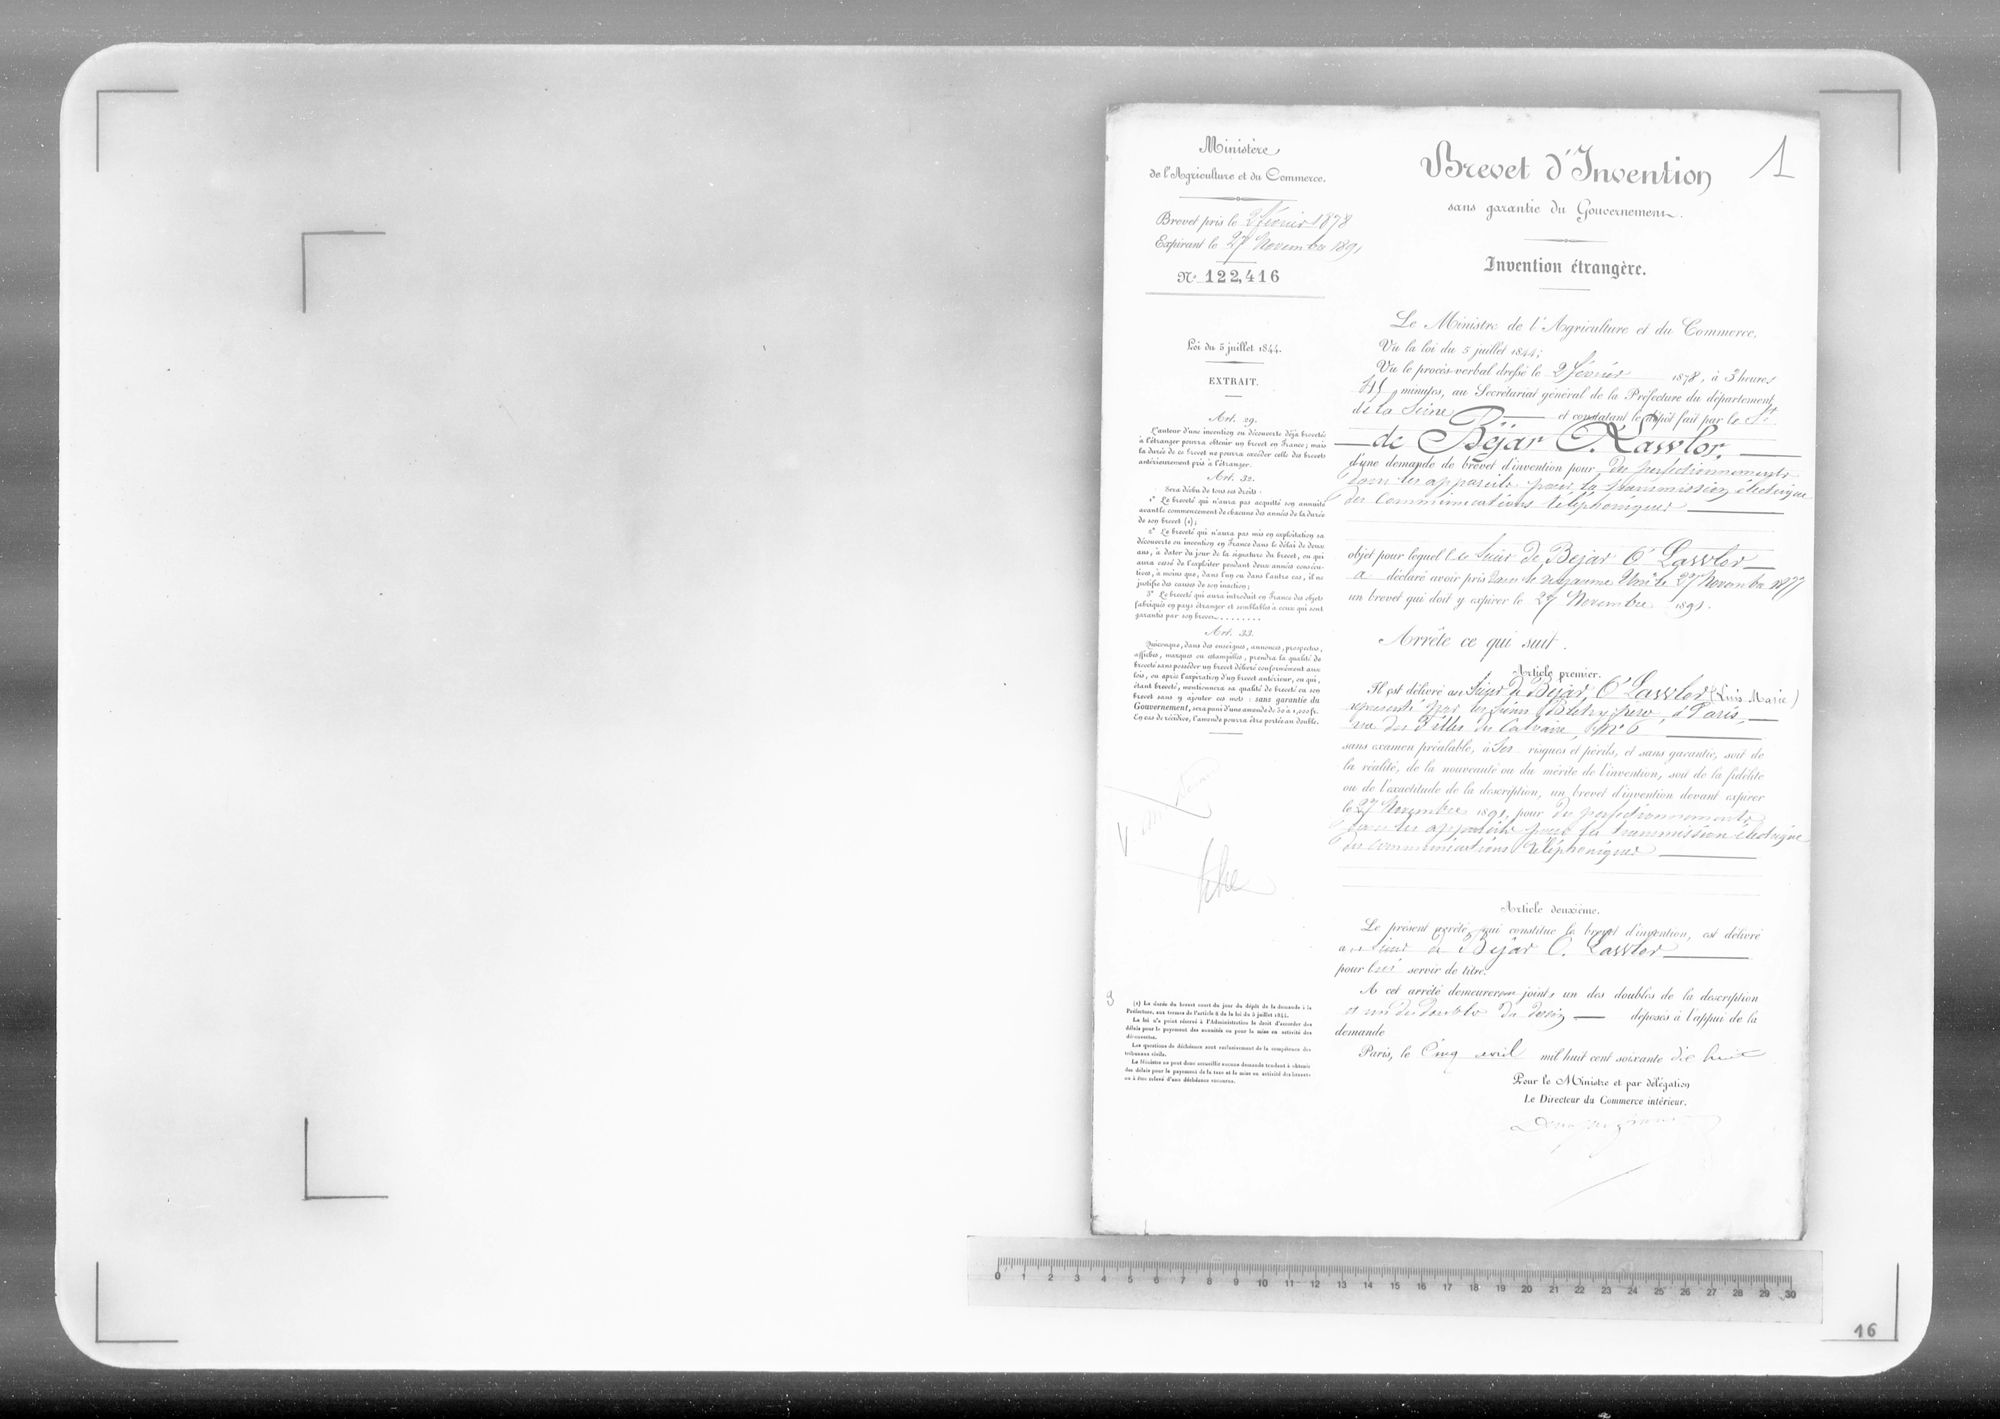 Ministère
de l'Agriculture et du Commerce.
Brevet pris le 2 février 1878
Expirant le 27 Novembre 1891
N° 122,416
Loi du 5 juillet 1844.
EXTRAIT.
Art. 29.
L'auteur d'une invention ou découverte déjà brevetée
à l'étranger pourra obtenir un brevet en France; mais
la durée de ce brevet ne pourra excéder celle des brevets
antérieurement pris à l'étranger.
Art. 32.
Sera déchu de tous ses droits :
1° Le breveté qui n'aura pas acquitté son annuité
avant le commencement de chacune des années de la durée
de son brevet (1);
2° Le breveté qui n'aura pas mis en exploitation sa
découverte ou invention en France dans le délai de deux
ans, à dater du jour de la signature du brevet, ou qui
aura cessé de l'exploiter pendant deux années consécu-
tives, à moins que, dans l'un ou dans l'autre cas, il ne
justifie des causes de son inaction;
3° Le breveté qui aura introduit en France des objets
fabriqués en pays étranger et semblables à ceux qui sont
garantis par son brevet........
Art. 33.
Quiconque, dans des enseignes, annonces, prospectus,
affiches, marques ou estampilles, prendra la qualité de
breveté sans posséder un brevet délivré conformément aux
lois, ou après l'expiration d'un brevet antérieur, ou qui,
étant breveté, mentionnera sa qualité de breveté ou son
brevet sans y ajouter ces mots : sans garantie du
Gouvernement, sera puni d'une amende de 50 à 1,000 fr.
En cas de récidive, l'amende pourra être portée au double.
9
(1) La durée du brevet court du jour du dépôt de la demande à la
Préfecture, aux termes de l'article 8 de la loi du 5 juillet 1844.
La loi n'a point réservé à l'Administration le droit d'accorder des
délais pour le payement des annuités ou pour la mise en activité des
découvertes.
Les questions de déchéance sont exclusivement de la compétence des
tribunaux civils.
Le Ministre ne peut donc accueillir aucune demande tendant à obtenir
des délais pour le payement de la taxe et la mise en activité des brevets
ou à être relevé d'une déchéance encourue.
1
Brevet d'Invention
sans garantie du Gouvernement.
Invention étrangère.
Le Ministre de l'Agriculture et du Commerce,
Vu la loi du 5 juillet 1844;
Vu le procès-verbal dressé le 2 février 1878, à 3 heures
45 minutes, au Secrétariat général de la Préfecture du département
de la Seine et constatant le dépôt fait par le Sr
de Béjar O. Lawlor.
d'une demande de brevet d'invention pour des perfectionnements
dans les appareils pour la transmission électrique
des communications téléphoniques
objet pour lequel le Sieur de Béjar O' Lawlor
a déclaré avoir pris dans le royaume Uni le 27 Novembre 1877
un brevet qui doit y expirer le 27 Novembre 1891.
Arrête ce qui suit.
Article premier.
Il est délivré au Sieur de Béjar O' Lawlor (Luis Marie)
représenté par les sieurs Blétry frères, à Paris,
rue des Filles du Calvaire, N° 6
sans examen préalable, à ses risques et périls, et sans garantie, soit de
la réalité, de la nouveauté ou du mérite de l'invention, soit de la fidélité
ou de l'exactitude de la description, un brevet d'invention devant expirer
le 27 Novembre 1891, pour des perfectionnements
dans les appareils pour la transmission électrique
des communications téléphoniques
Article deuxième.
Le présent arrêté, qui constitue le brevet d'invention, est délivré
au Sieur de Béjar O. Lawlor
pour lui servir de titre.
A cet arrêté demeureront joints un des doubles de la description
et un des doubles du dessin déposés à l'appui de la
demande
Paris, le Cinq avril mil huit cent soixante dix huit
Pour le Ministre et par délégation
Le Directeur du Commerce intérieur,
0 1 2 3 4 5 6 7 8 9 10 11 12 13 14 15 16 17 18 19 20 21 22 23 24 25 26 27 28 29 30
16